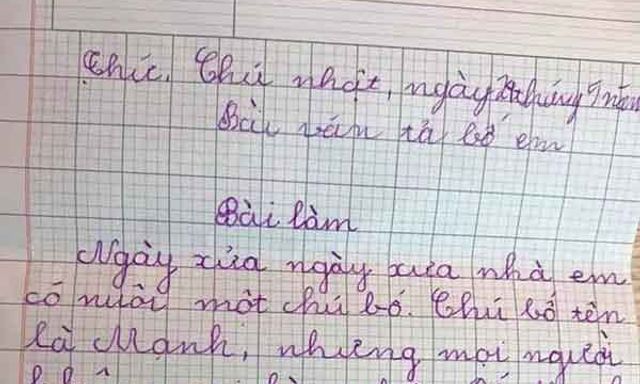 Thứ, Chủ nhật, ngày tháng 9 năm
Bài văn tả bố em
Bài làm
Ngày xửa ngày xưa nhà em
có nuôi một chú bố. Chú bố tên
là Mạnh, nhưng mọi người